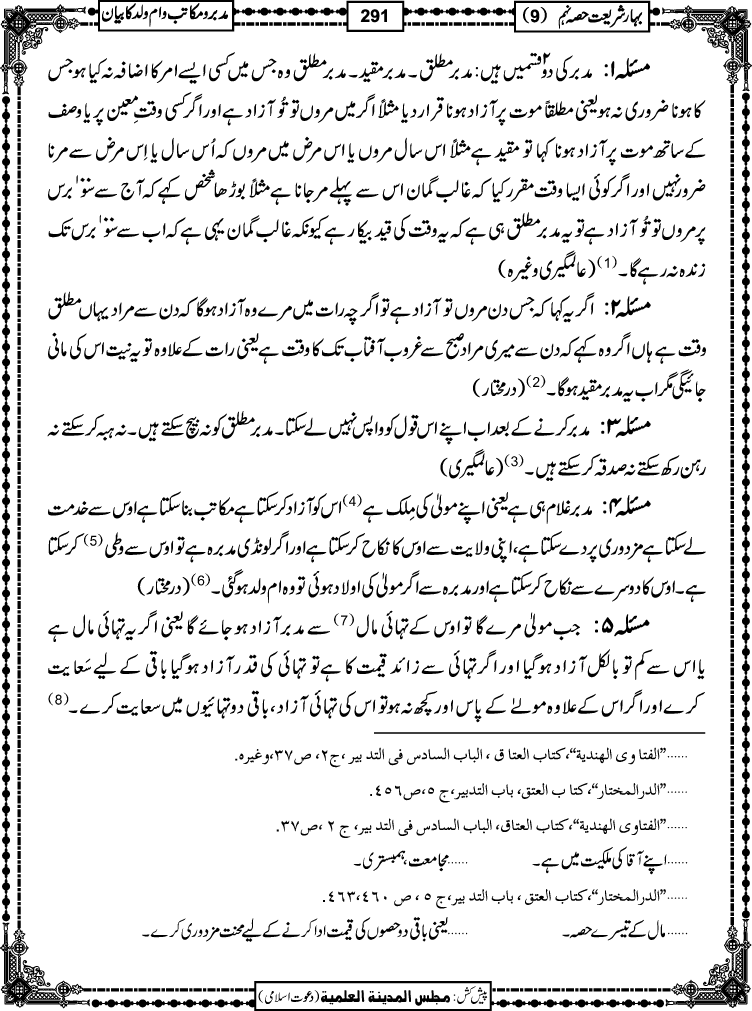 بہار شریعت حصہ نہم (9)
291
مدبر و مکاتب و ام ولد کا بیان
مسئلہ ۱: مدبر کی دو۲ قسمیں ہیں: مدبر مطلق۔ مدبر مقید۔ مدبر مطلق وہ جس میں کسی ایسے امر کا اضافہ نہ کیا ہو جس
کا ہونا ضروری نہ ہو یعنی مطلقاً موت پر آزاد ہونا قرار دیا مثلاً اگر میں مروں تو تُو آزاد ہے اور اگر کسی وقتِ معین پر یا وصف
کے ساتھ موت پر آزاد ہونا کہا تو مقید ہے مثلاً اس سال مروں یا اس مرض میں مروں کہ اُس سال یا اِس مرض سے مرنا
ضرور نہیں اور اگر کوئی ایسا وقت مقرر کیا کہ غالب گمان اس سے پہلے مر جانا ہے مثلاً بوڑھا شخص کہے کہ آج سے سو۱۰۰ برس
پر مروں تو تُو آزاد ہے تو یہ مدبر مطلق ہی ہے کہ یہ وقت کی قید بیکار ہے کیونکہ غالب گمان یہی ہے کہ اب سے سو۱۰۰ برس تک
زندہ نہ رہے گا۔(1) (عالمگیری وغیرہ)
مسئلہ ۲: اگر یہ کہا کہ جس دن مروں تو آزاد ہے تو اگرچہ رات میں مرے وہ آزاد ہوگا کہ دن سے مراد یہاں مطلق
وقت ہے ہاں اگر وہ کہے کہ دن سے میری مراد صبح سے غروب آفتاب تک کا وقت ہے یعنی رات کے علاوہ تو یہ نیت اس کی مانی
جائیگی مگر اب یہ مدبر مقید ہوگا۔(2) (درمختار)
مسئلہ ۳: مدبر کرنے کے بعد اب اپنے اس قول کو واپس نہیں لے سکتا۔ مدبر مطلق کو نہ بیچ سکتے ہیں۔ نہ ہبہ کر سکتے نہ
رہن رکھ سکتے نہ صدقہ کر سکتے ہیں۔(3) (عالمگیری)
مسئلہ ۴: مدبر غلام ہی ہے یعنی اپنے مولیٰ کی مِلک ہے(4) اس کو آزاد کر سکتا ہے مکاتب بنا سکتا ہے اوس سے خدمت
لے سکتا ہے مزدوری پر دے سکتا ہے، اپنی ولایت سے اوس کا نکاح کر سکتا ہے اور اگر لونڈی مدبرہ ہے تو اوس سے وطی(5) کر سکتا
ہے۔ اوس کا دوسرے سے نکاح کر سکتا ہے اور مدبرہ سے اگر مولیٰ کی اولاد ہوئی تو وہ ام ولد ہوگئی۔(6) (درمختار)
مسئلہ ۵: جب مولیٰ مرے گا تو اوس کے تہائی مال(7) سے مدبر آزاد ہو جائے گا یعنی اگر یہ تہائی مال ہے
یا اس سے کم تو بالکل آزاد ہوگیا اور اگر تہائی سے زائد قیمت کا ہے تو تہائی کی قدر آزاد ہوگیا باقی کے لیے سَعایت
کرے اور اگر اس کے علاوہ مولےٰ کے پاس اور کچھ نہ ہو تو اس کی تہائی آزاد، باقی دو تہائیوں میں سعایت کرے۔(8)
......”الفتاوی الھندیة“، کتاب العتاق، الباب السادس فی التدبیر، ج۲، ص۳۷، وغیرہ.
......”الدرالمختار“، کتاب العتق، باب التدبیر، ج ۵، ص۴۵۶.
......”الفتاوی الھندیة“، کتاب العتاق، الباب السادس فی التدبیر، ج ۲، ص۳۷.
......اپنے آقا کی ملکیت میں ہے۔ ......مجامعت، ہمبستری۔
......”الدرالمختار“، کتاب العتق، باب التدبیر، ج ۵، ص ۴۶۳،۴۶۰.
......مال کے تیسرے حصہ۔ ......یعنی باقی دو حصوں کی قیمت ادا کرنے کے لیے محنت مزدوری کرے۔
پیش کش: مجلس المدینة العلمیة (دعوت اسلامی)